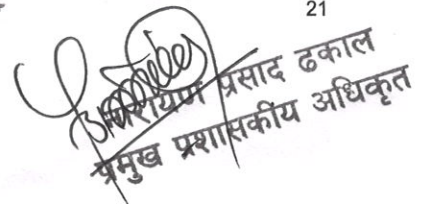 21
नारायण प्रसाद ढकाल
प्रमुख प्रशासकीय अधिकृत